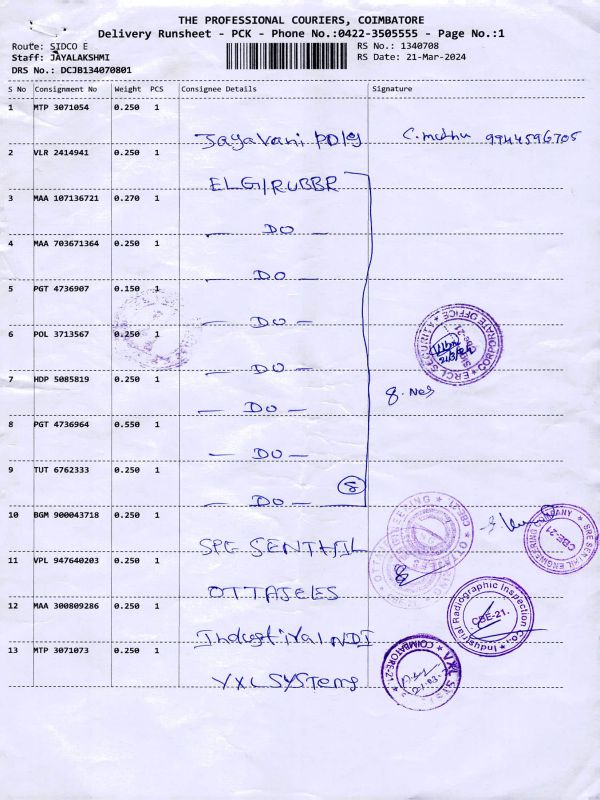 THE PROFESSIONAL COURIERS, COIMBATORE
Delivery Runsheet - PCK - Phone No.:0422-3505555 - Page No.:1
Route: SIDCO E
Staff: JAYALAKSHMI
DRS No.: DCJB134070801
RS No.: 1340708
RS Date: 21-Mar-2024
S No Consignment No Weight PCS Consignee Details Signature
1 MTP 3071054 0.250 1
Jayavani C. muthu 9944596705
2 VLR 2414941 0.250 1
ELGI RUBBR
3 MAA 107136721 0.270 1
— DO —
4 MAA 703671364 0.250 1
— DO —
5 PGT 4736907 0.150 1
— DO —
6 POL 3713567 0.250 1
— DO —
7 HDP 5085819 0.250 1
— DO —
8 PGT 4736964 0.550 1
— DO —
9 TUT 6762333 0.250 1
— DO —
8
8. Nos
ERCL SECURITY * CORPORATE OFFICE *
21/3/24
10 BGM 900043718 0.250 1
SRE SENTHIL
SRE SENTHIL ENGINEERING COMPANY * CBE-21
11 VPL 947640203 0.250 1
OTTAJELES
12 MAA 300809286 0.250 1
Industiyal NDI
Industrial Radiographic Inspection Co. * CBE-21.
13 MTP 3071073 0.250 1
VXL SYSTEMS
COIMBATORE-21. * VXL